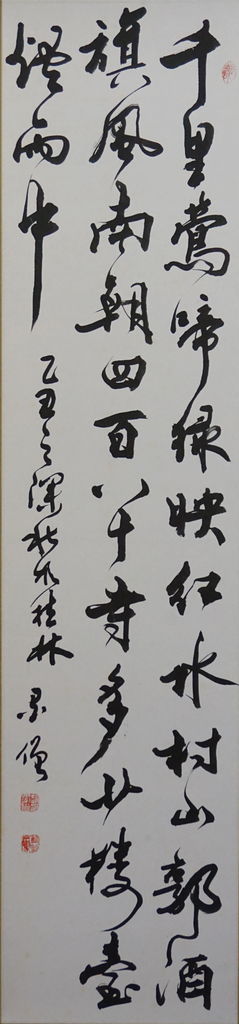 千里鶯啼綠映紅水村山郭酒
旗風南朝四百八十寺多少樓臺
煙雨中
乙丑之深秋於桂林